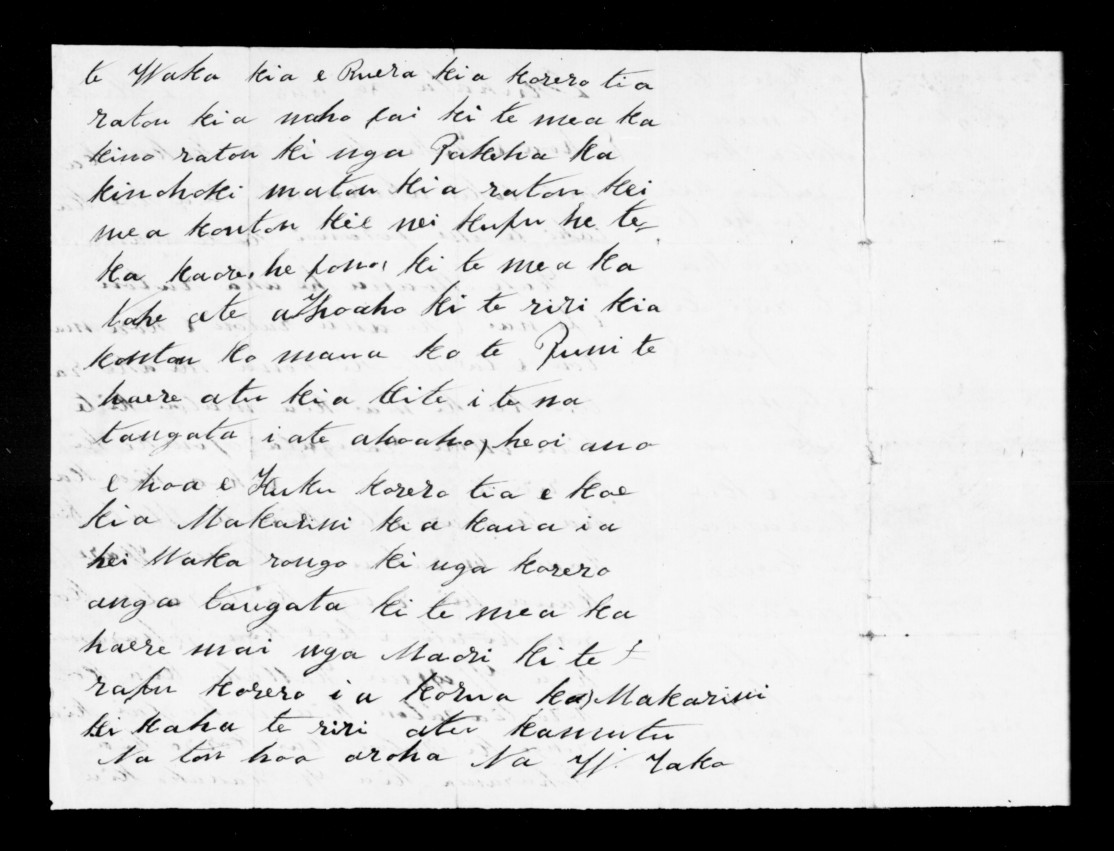 te Waka kia e Ruera kia korero tia
ratou kia noho pai ki te mea ka
kino ratou ki nga Pakeha ka
kinohoki matou kia ratou kei
mea koutou kei nei kupu he te
ka kaore, he pono, ki te mea ka
tahe ate awhoaho ki te riri kia
koutou ko maua ko te Puni te
haere atu kia kite i te na
tangata i ate ahoaho, heoi ano
e hoa e Kuku korero tia e koe
kia Makarini kia kaua ia
hei Waka rongo ki nga korero
anga tangata ki te mea ka
haere mai nga Maori ki te
rapu korero i a korua ko Makarini
kei kaha te riri atu kamutu
Na tou hoa aroha Na